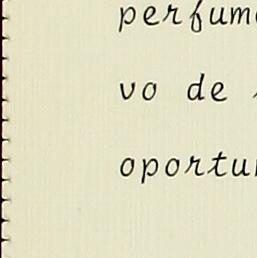 perfum
vo de
oportu